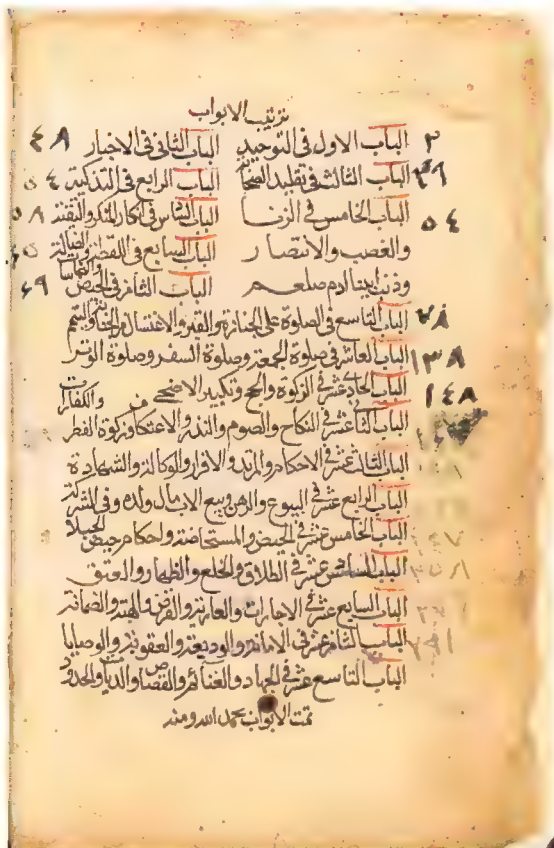 ترتيب الابواب
٢ الباب الاول في التوحيد الباب الثاني في الاخبار ٤٨
الباب الثالث في تقليد الصحابة الباب الرابع في التذكية ٥٤
٥٤ الباب الخامس في الزنا الباب السادس في انكار المنكر والتقية ٥٨
والغصب والانتصار الباب السابع في اللقطة
وذنب ابينا ادم صلعم الباب الثامن في الحيض ٦٩
٧٨ الباب التاسع في الصلوة على الجنازة والقبر والاغتسال من الجنابة والتيمم
١٣٨ الباب العاشر في صلوة الجمعة وصلوة السفر وصلوة الوتر
١٤٨ الباب الحادي عشر في الزكوة والحج وتكبير الاضحى والكفارات
الباب الثاني عشر في النكاح والصوم والنذر والاعتكاف وزكوة الفطر
الباب الثالث عشر في الاحكام والمرتد والاقرار والوكالة والشهادة
الباب الرابع عشر في البيوع والرهن وبيع الاب مال ولده وفي الشركة
الباب الخامس عشر في الحيض والمستحاضة واحكام حيض الحبلا
الباب السادس عشر في الطلاق والخلع والظهار والعتق
الباب السابع عشر في الاجارات والعارية والقرض والهبة والضمانة
الباب الثامن عشر في الامانة والوديعة والعقوبة والوصايا
الباب التاسع عشر في الجهاد والغنائم والقصاص والديات والحدود
تمت الابواب بحمد الله ومنه